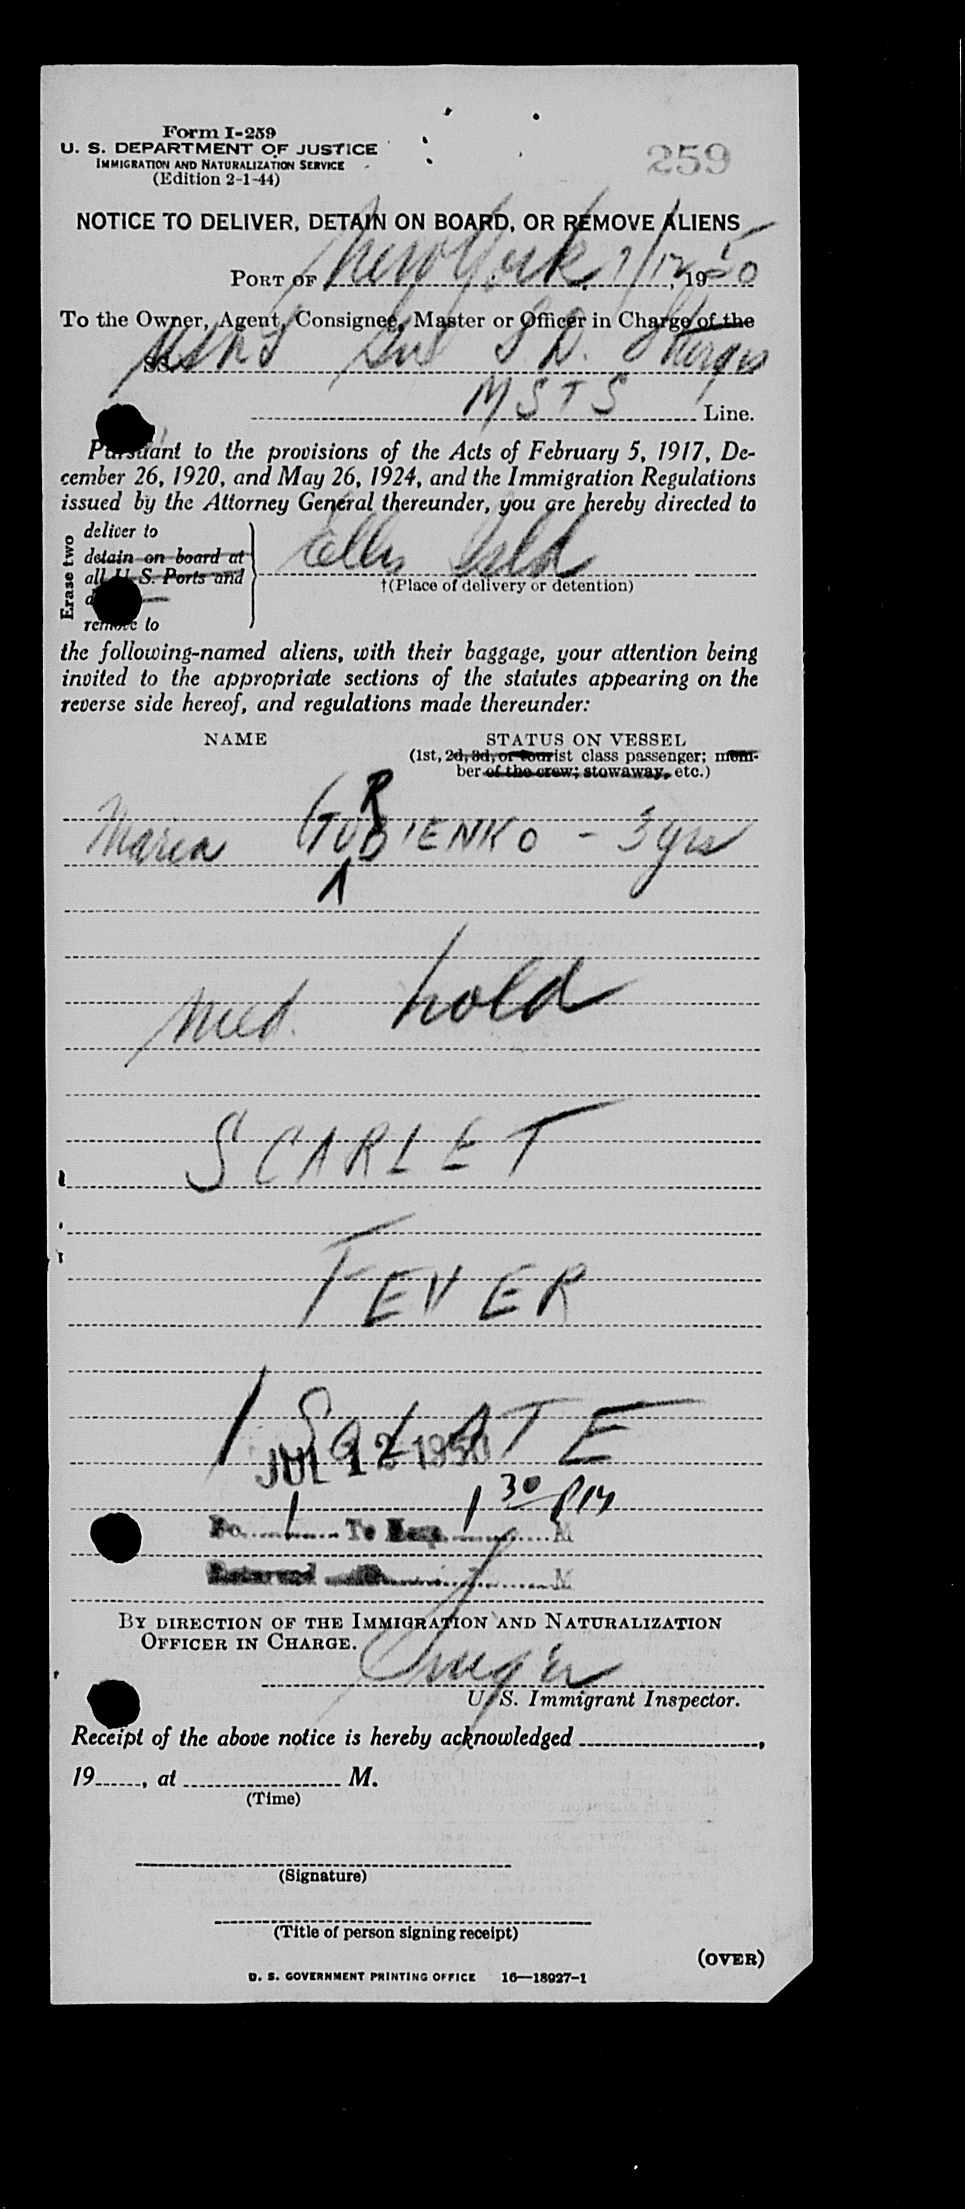 Form I-259
U. S. DEPARTMENT OF JUSTICE
IMMIGRATION AND NATURALIZATION SERVICE
(Edition 2-1-44)
259
NOTICE TO DELIVER, DETAIN ON BOARD, OR REMOVE ALIENS
PORT OF New York, 7/12, 1950
To the Owner, Agent, Consignee, Master or Officer in Charge of the
SS. USNS Gen S. D. Sturgis
MSTS Line.
Pursuant to the provisions of the Acts of February 5, 1917, De-
cember 26, 1920, and May 26, 1924, and the Immigration Regulations
issued by the Attorney General thereunder, you are hereby directed to
Erase two
deliver to
detain on board at
all U. S. Ports and
remove to
Ellis Isld
†(Place of delivery or detention)
the following-named aliens, with their baggage, your attention being
invited to the appropriate sections of the statutes appearing on the
reverse side hereof, and regulations made thereunder:
NAME STATUS ON VESSEL
(1st, 2d, 3d, or tourist class passenger; mem-
ber of the crew; stowaway, etc.)
R
Maria GUBIENKO - 3 yrs
Med. hold
SCARLET
FEVER
ISOLATE
JUL 12 1950
1 To Hosp. 1 30 PM M
Returned M
BY DIRECTION OF THE IMMIGRATION AND NATURALIZATION
OFFICER IN CHARGE.
U. S. Immigrant Inspector.
Receipt of the above notice is hereby acknowledged ,
19 , at M.
(Time)
(Signature)
(Title of person signing receipt)
(OVER)
U. S. GOVERNMENT PRINTING OFFICE 16—18927-1